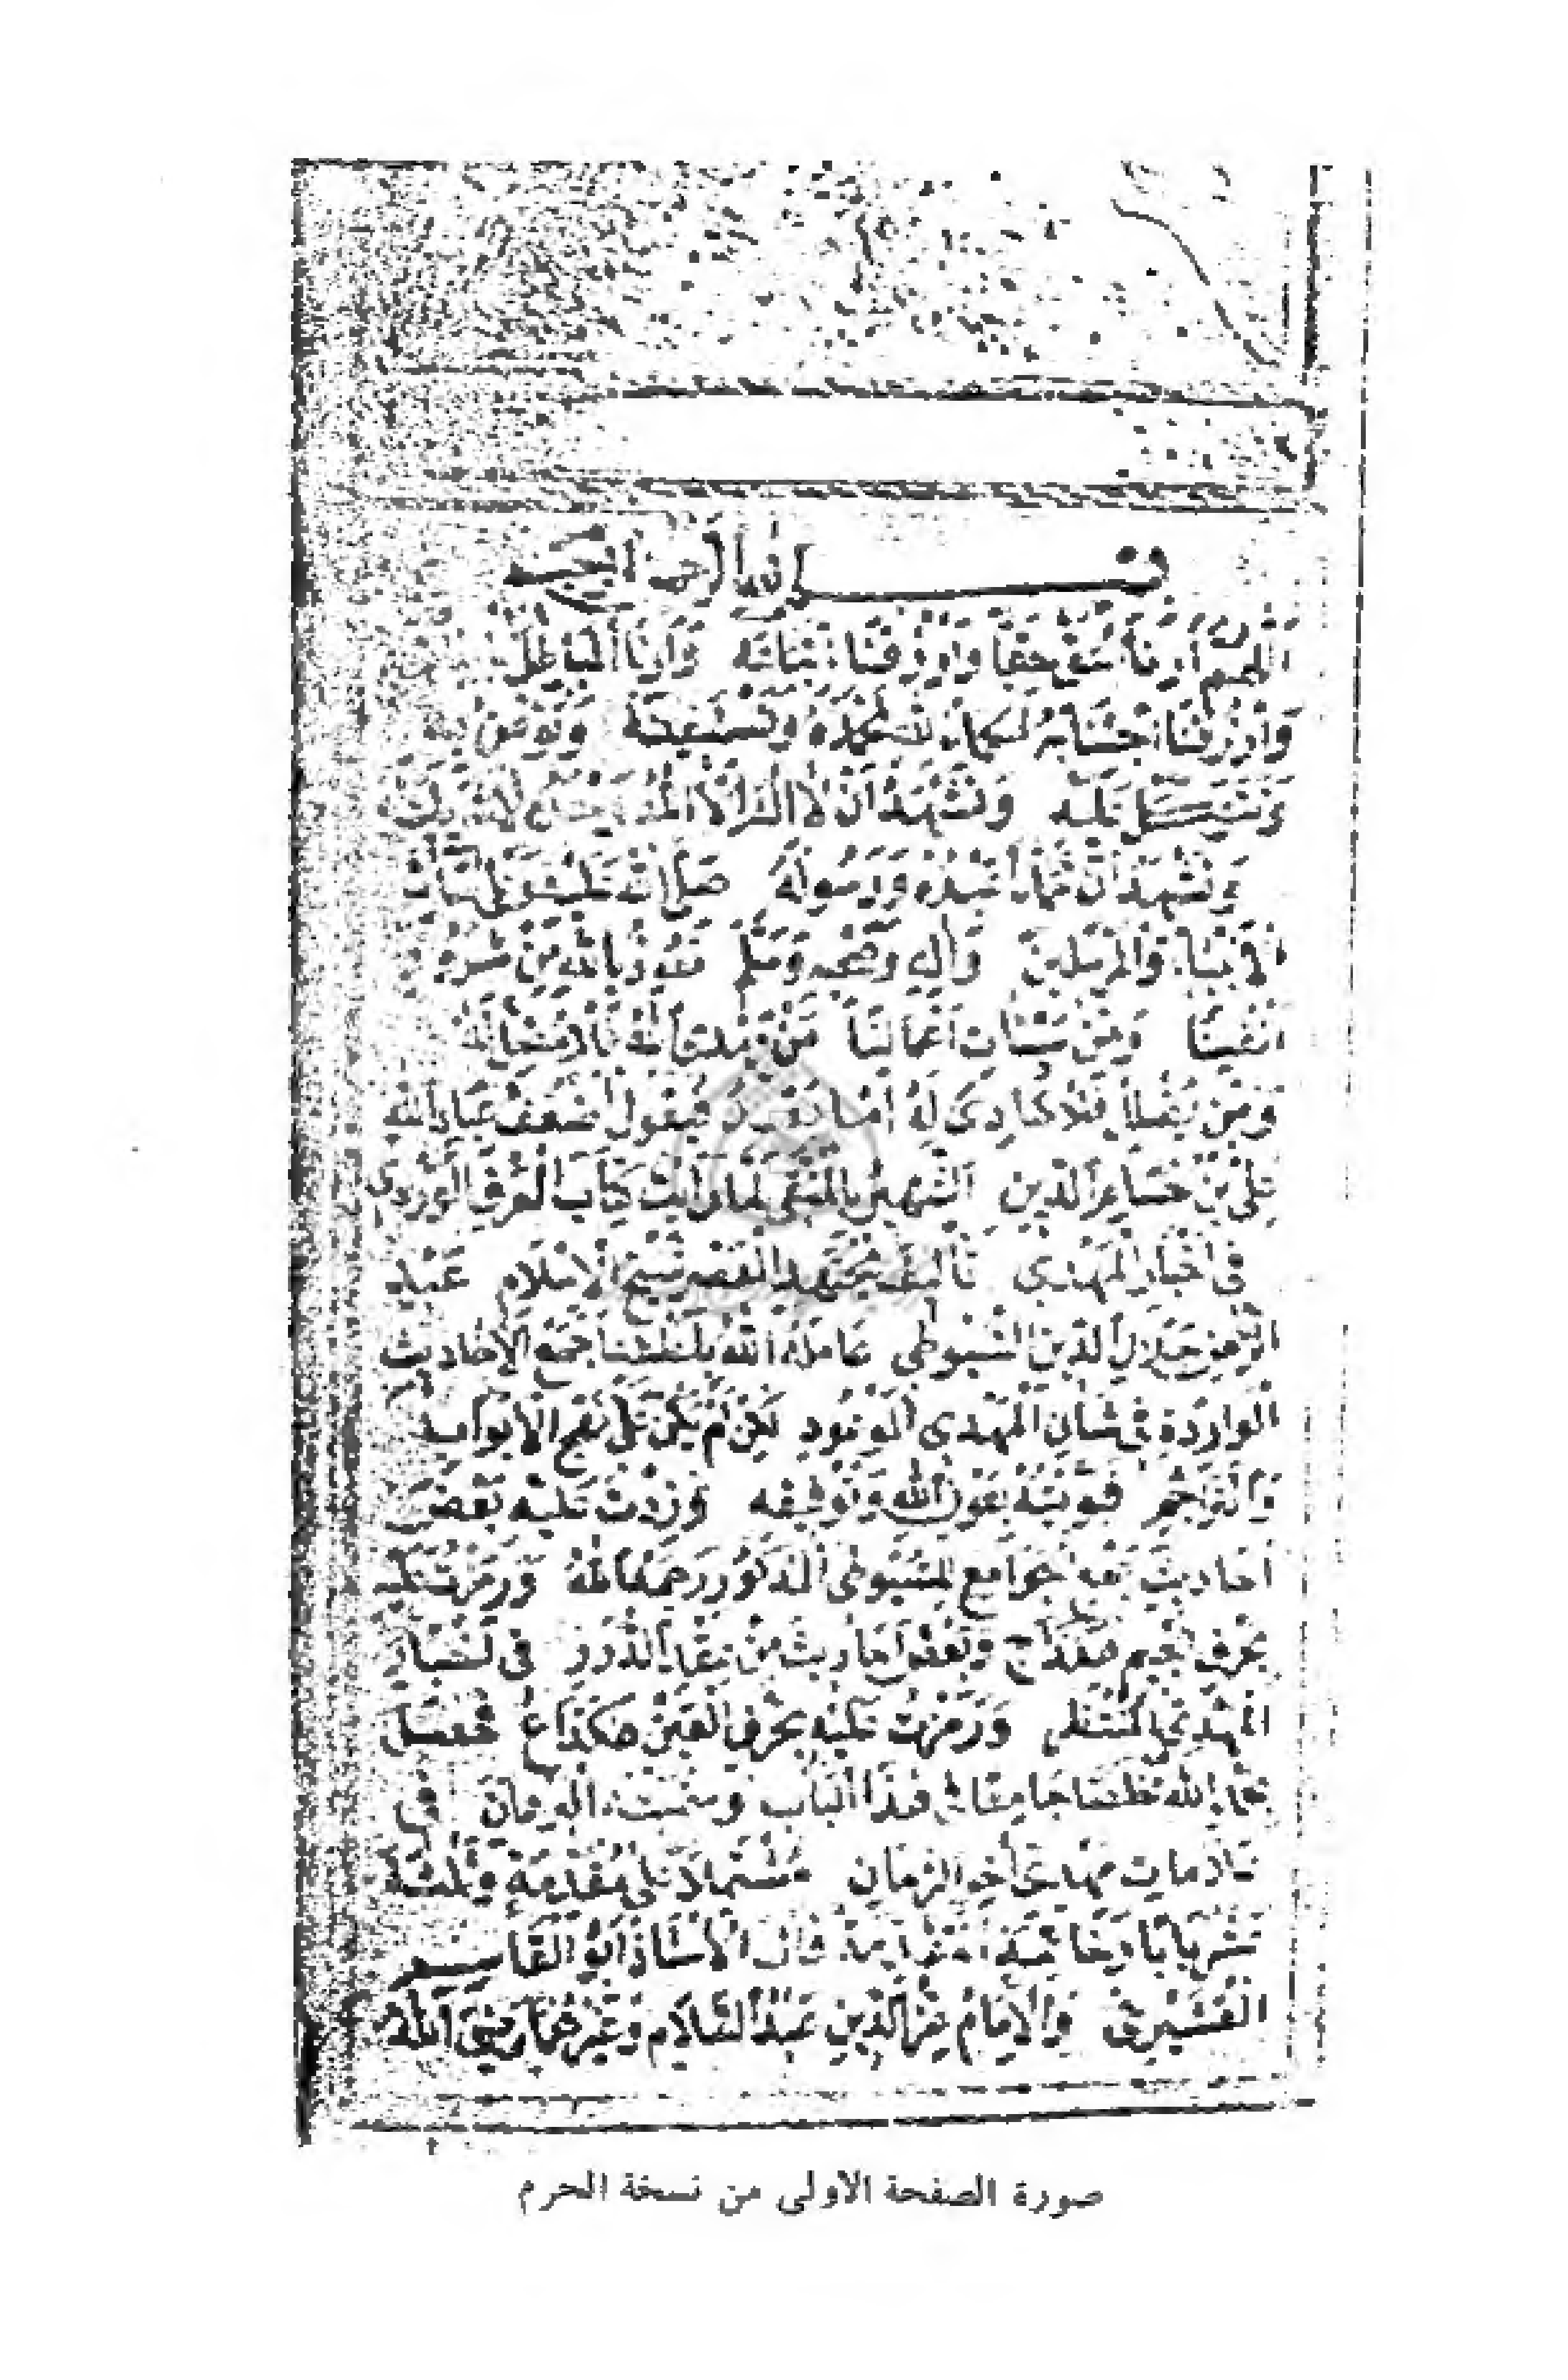 بسم الله الرحمن الرحيم
اللهم أرنا الحق حقا وارزقنا اتباعه وأرنا الباطل
وارزقنا اجتنابه الحمد لله نحمده ونستعينه ونؤمن به
ونتوكل عليه ونشهد أن لا اله إلا الله وحده لا شريك له
ونشهد أن محمدا عبده ورسوله صلى الله عليه وعلى
الأنبياء والمرسلين وآله وصحبه وسلم نعوذ بالله من شرور
أنفسنا ومن سيئات أعمالنا من يهده الله فلا مضل له
ومن يضلل فلا هادى له أما بعد فيقول أضعف عباد الله
على بن حسام الدين الشهير بالمتقى لما رأيت كتاب العرف الوردى
فى أخبار المهدى تأليف مجتهد العصر شيخ الاسلام عبد
الرحمن جلال الدين السيوطى عامله الله بلطفه جمع الأحاديث
الواردة فى شان المهدى الموعود لكن لم يكن على نهج الأبواب
والتراجم فبوبته بعون الله وتوفيقه وزدت عليه بعض
أحاديث جمع جوامع السيوطى المذكور رحمه الله ورمزت عليه
بحرف الجيم هكذا ج وبعض أحاديث من عقد الدرر فى أخبار
المهدى المنتظر ورمزت عليه بحرف العين هكذا ع فحصل
بحمد الله جامعا فى هذا الباب وسميته البرهان فى
علامات مهدى آخر الزمان مشتملا على مقدمة وثلثة
عشر بابا وخاتمة المقدمة قال الأستاذ أبو القاسم
القشيرى والامام عز الدين عبد السلام وغيرهما رضى الله
صورة الصفحة الاولى من نسخة الحرم